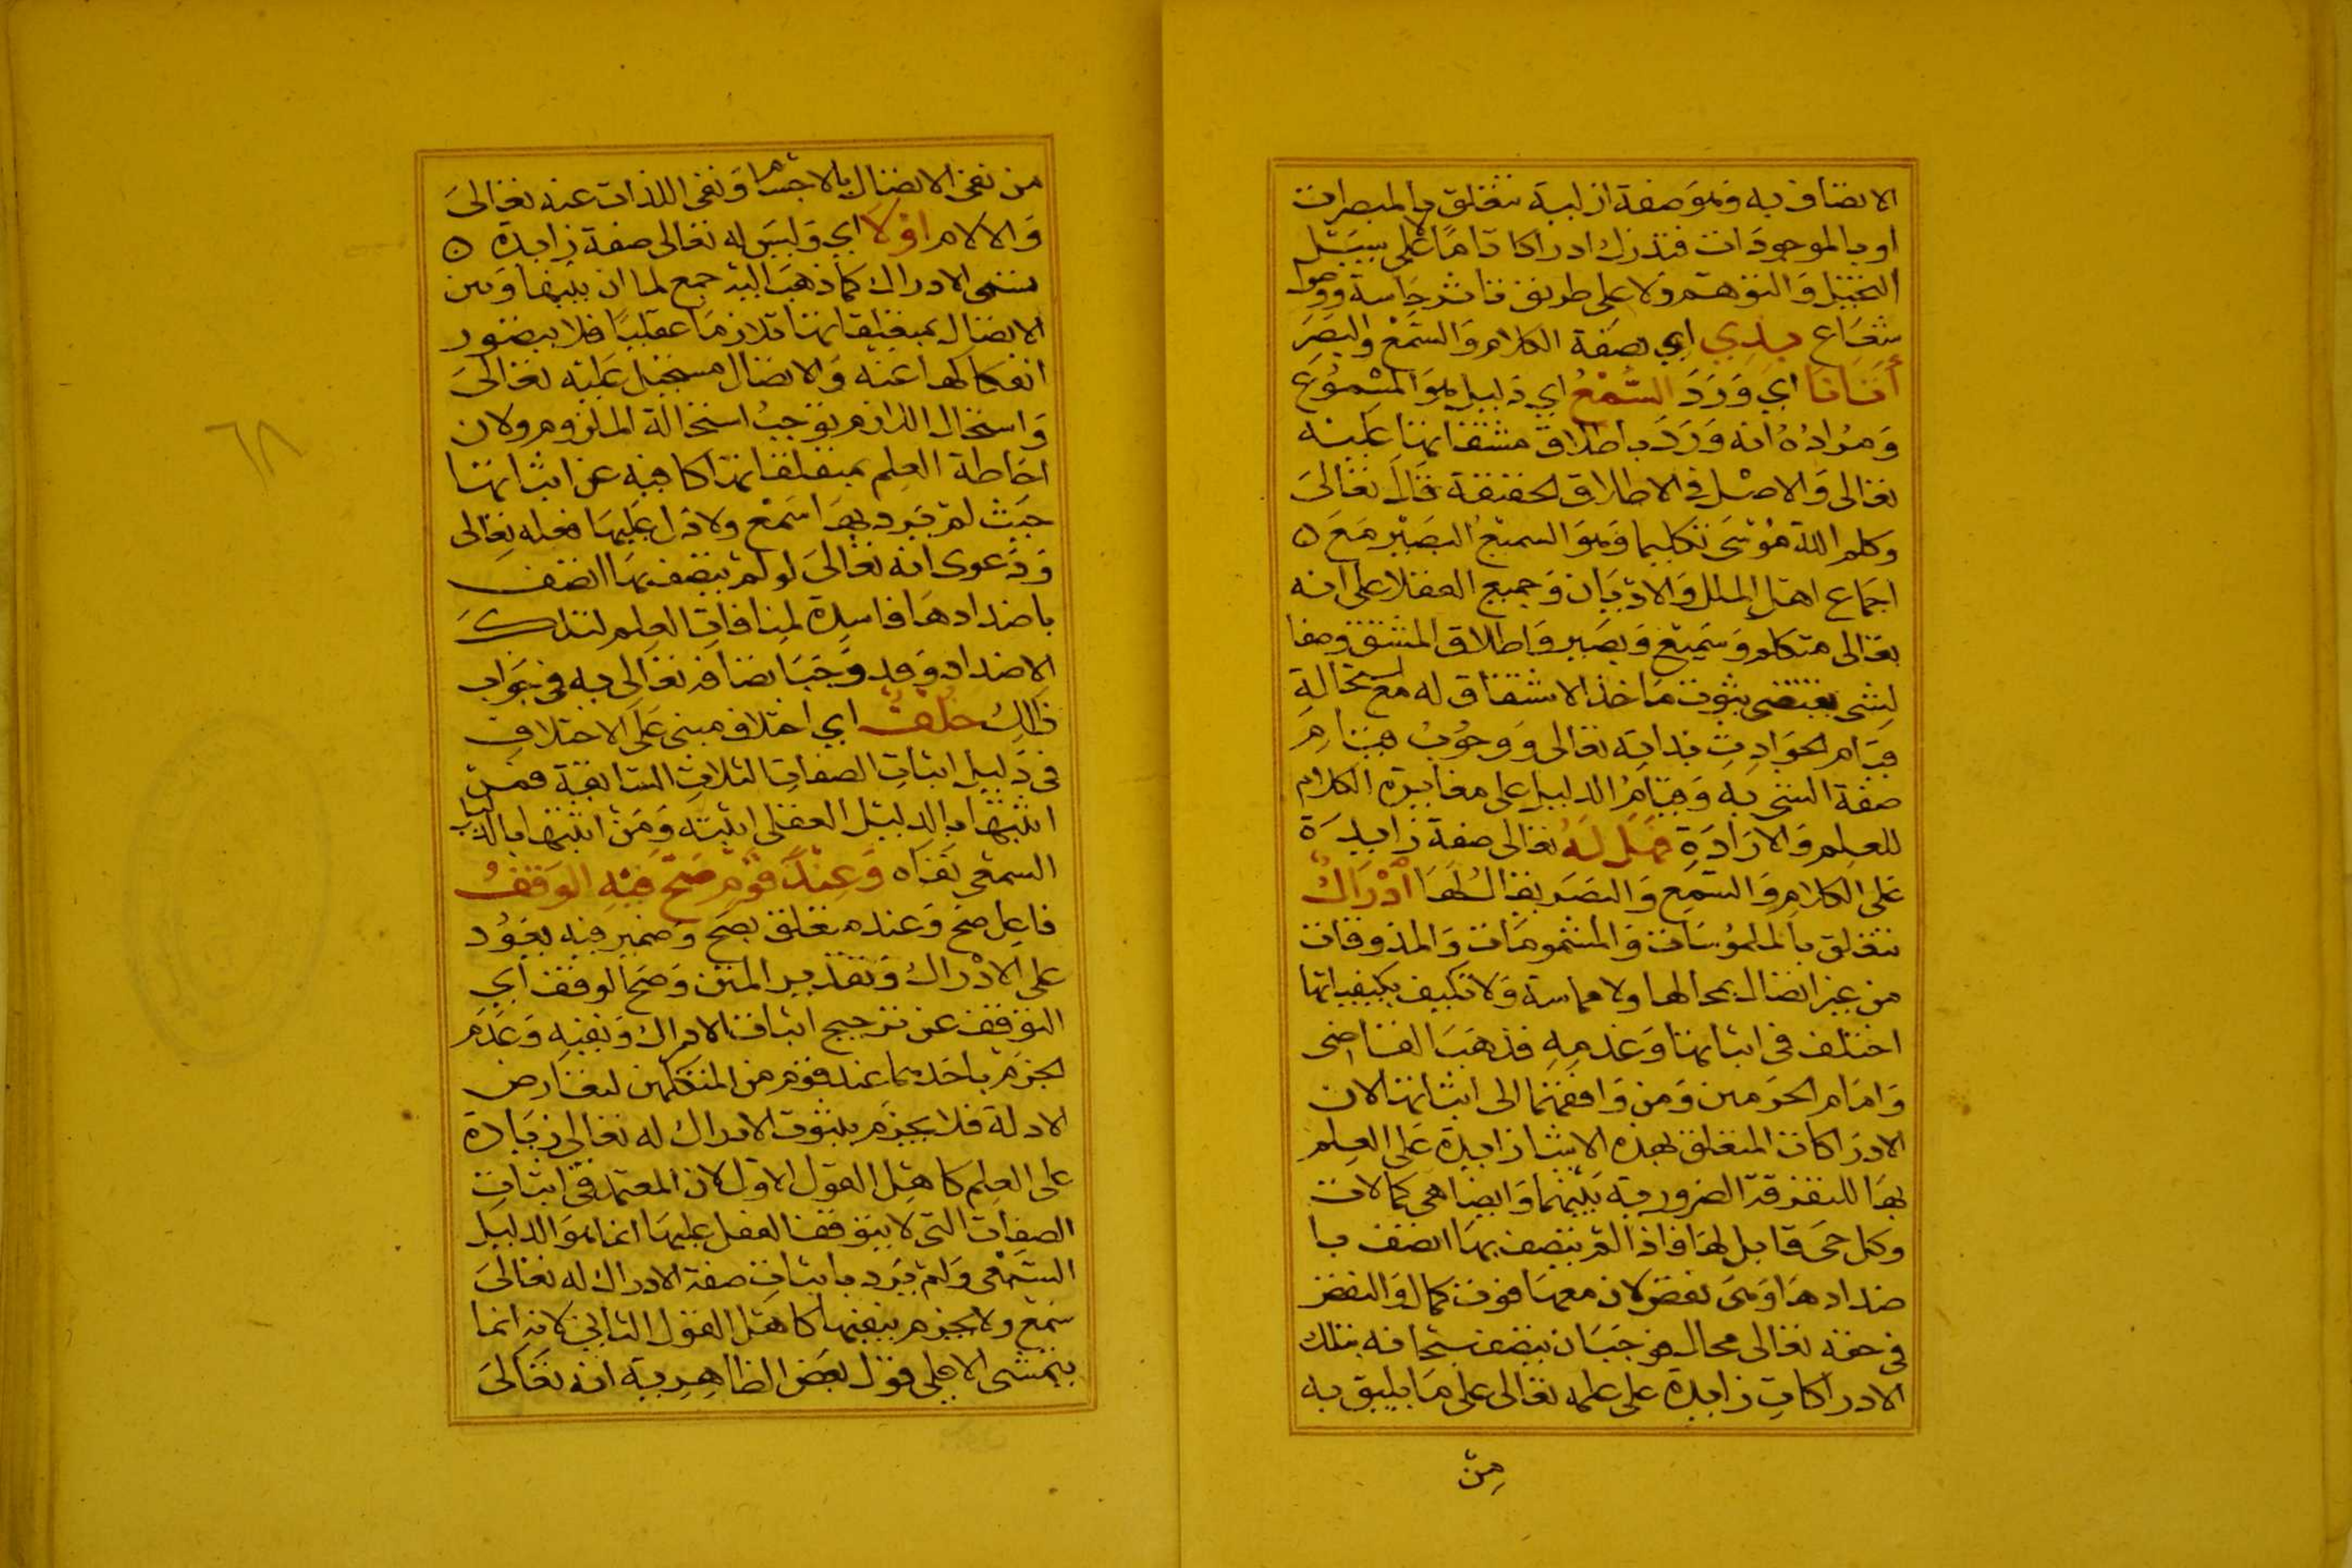 الاتصاف به وهو صفة ازلية تتعلق بالمبصرات
او بالموجودات فتدرك ادراكا تاما لا على سبيل
التخييل والتوهم ولا على طريق تاثر حاسة ووصول
شعاع بذي اي بصفة الكلام والسمع والبصر
أتانا اي ورد السمع اي دليل هو المسموع
ومراده انه ورد باطلاق مشتقاتها عليه
تعالى والاصل في الاطلاق الحقيقة قال تعالى
وكلم الله موسى تكليما وهو السميع البصير مع ه
اجماع اهل الملل والاديان وجميع العقلا على انه
تعالى متكلم وسميع وبصير واطلاق المشتق وصفا
لشي يقتضي ثبوت ماخذ الاشتقاق له مع استحالة
قيام الحوادث بذاته تعالى ووجوب قيام
صفة الشي به وقيام الدليل على مغايرة الكلام
للعلم والارادة فهل له تعالى صفة زايدة
على الكلام والسمع والبصر يقال لها ادراك
تتعلق بالملموسات والمشمومات والمذوقات
من غير اتصال بمحالها ولا مماسة ولا تكيف بكيفياتها
اختلف في اثباتها وعدمه فذهب القاضي
وامام الحرمين ومن وافقهما الى اثباتها لان
الادراكات المتعلق بهذه الاشيا زايدة على العلم
بها للتفرقة الضرورية بينهما وايضا هي كمالات
وكل حي قابل لها فاذا لم يتصف بها اتصف با
ضدادها وهي نقص لان معها فوت كمال والنقص
في حقه تعالى محال فوجب ان يتصف سبحانه بتلك
الادراكات زايدة على علمه تعالى على ما يليق به
من
من نفي الاتصال بالاجسام ونفي اللذات عنه تعالى
والالام او لا اي وليس له تعالى صفة زايدة ه
تسمى الادراك كما ذهب اليه جمع لما ان بينها وبين
الاتصال بمتعلقاتها تلازما عقليا فلا يتصور
انفكاكها عنه والاتصال مستحيل عليه تعالى
واستحال اللازم توجب استحالة الملزوم ولان
احاطة العلم بمتعلقاتها كافية عن اثباتها
حيث لم يرد بها سمع ولا دل عليها فعله تعالى
ودعوى انه تعالى لو لم يتصف بها اتصف
باضدادها فاسدة لمنافات العلم لتلك
الاضداد وقد وجب اتصافه تعالى به في جواب
ذالك خلف اي اختلاف مبني على الاختلاف
في دليل اثبات الصفات الثلاث السابقة فمن
اثبتها بالدليل العقلي اثبته ومن اثبتها بالدليل
السمعي نفاه وعند قوم صح فيه الوقف
فاعل صح وعند متعلق بصح وضمير فيه يعود
على الادراك وتقدير المتن وصح الوقف اي
التوقف عن ترجيح اثبات الادراك ونفيه وعدم
الجزم باحدهما عند قوم من المتكلمين لتعارض
الادلة فلا يجزم بثبوت الادراك له تعالى زيادة
على العلم كاهل القول الاول لان المعتمد في اثبات
الصفات التي لا يتوقف الفعل عليها انما هو الدليل
السمعي ولم يرد باثبات صفة الادراك له تعالى
سمع ولا يجزم بنفيها كاهل القول الثاني لانه انما
يتمشى الا على قول بعض الظاهرية انه تعالى
٦٨